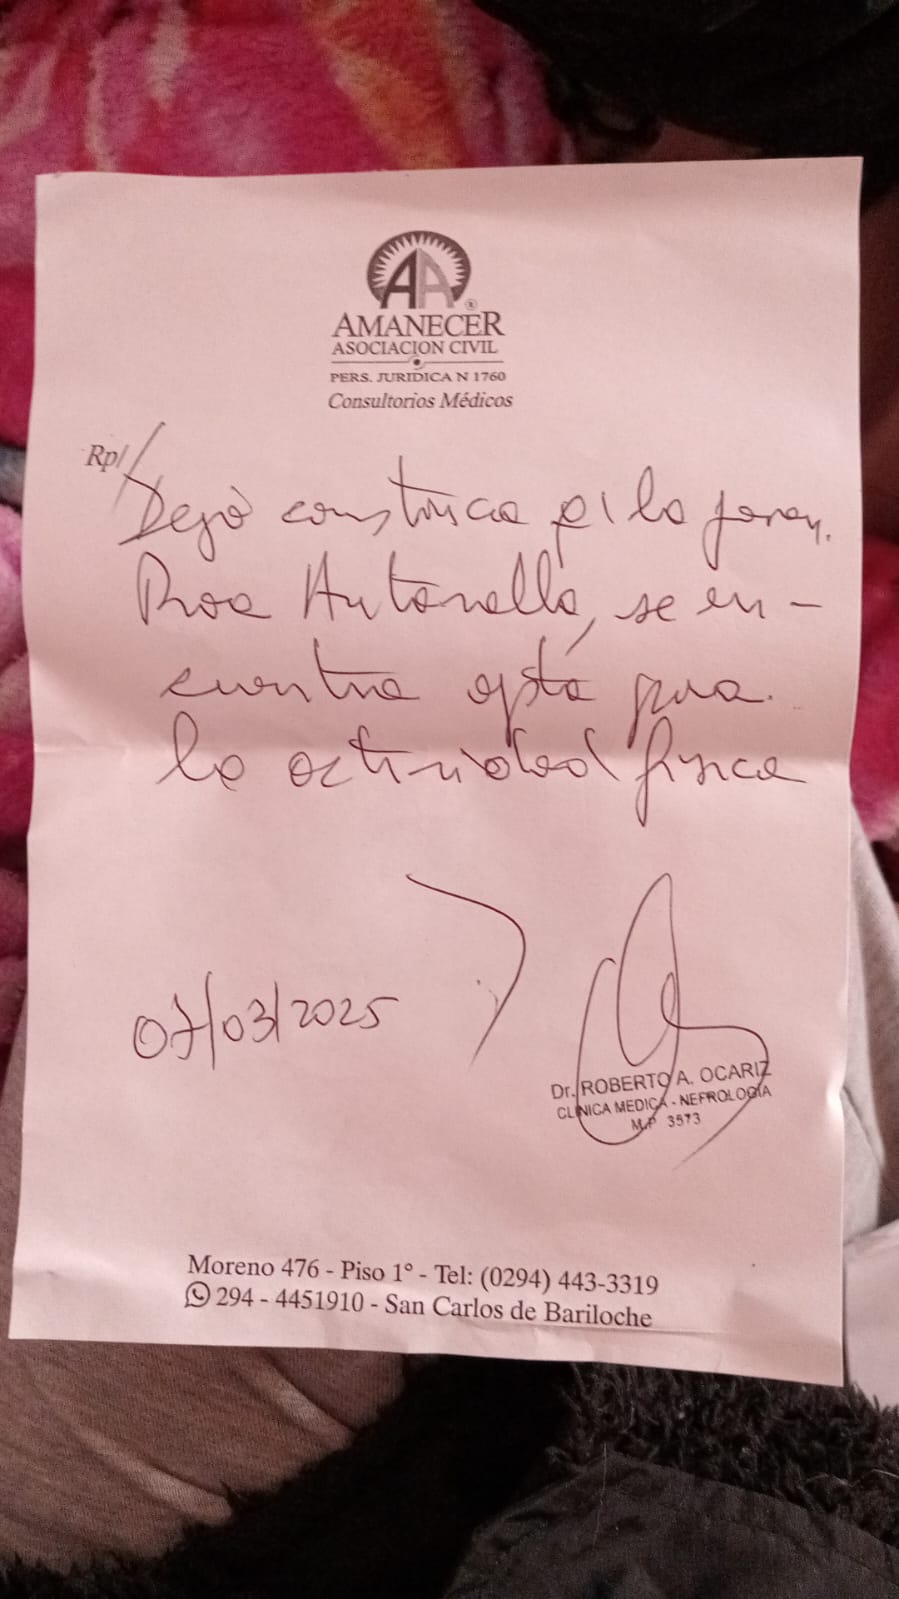 AA
®
AMANECER
ASOCIACION CIVIL
PERS. JURIDICA N 1760
Consultorios Médicos
Rp/
Dejo constancia q' la joven
Antonella, se en-
cuentra apta para
la actividad física
07/03/2025
Dr. ROBERTO A. OCARIZ
CLINICA MEDICA - NEFROLOGIA
M.P 3573
Moreno 476 - Piso 1° - Tel: (0294) 443-3319
294 - 4451910 - San Carlos de Bariloche